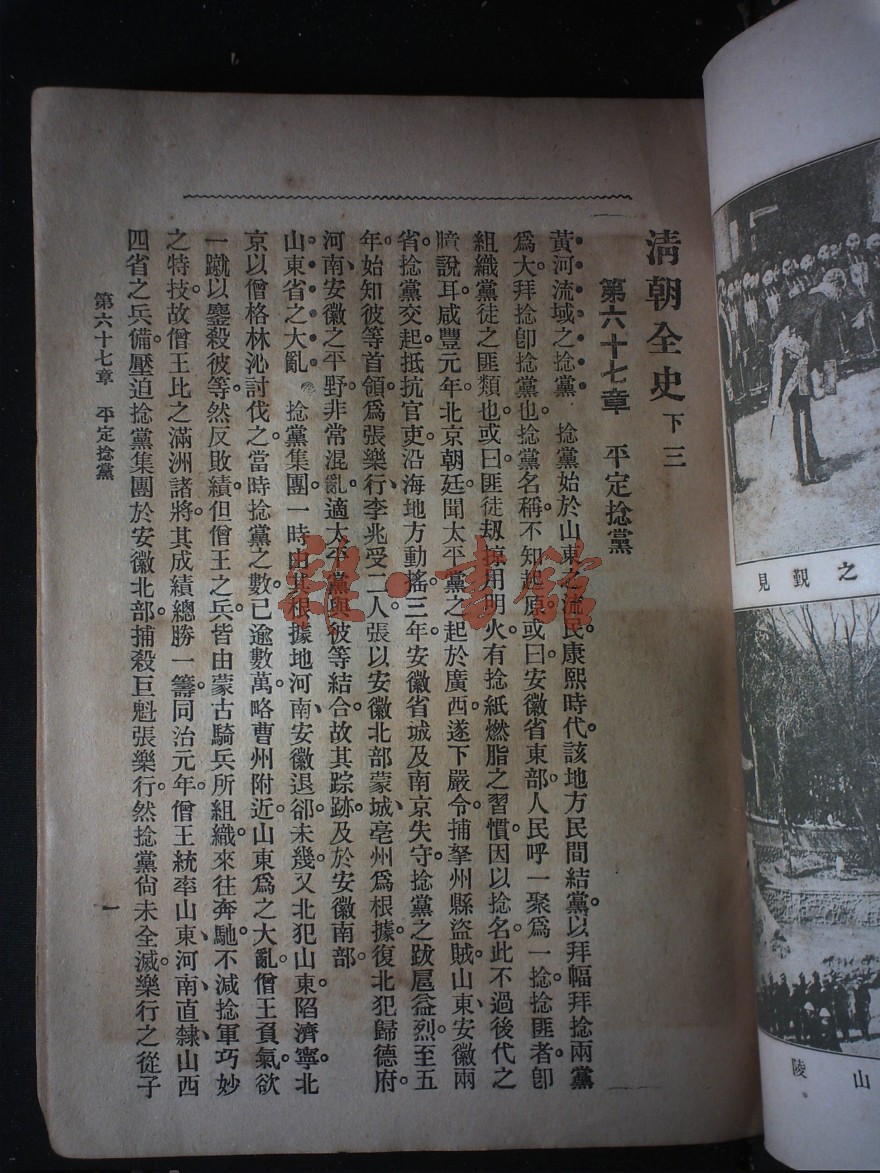 清朝全史 下三
第六十七章 平定捻黨
黃河流域之捻黨 捻黨始於山東之流民。康熙時代。該地方民間結黨。以拜幅拜捻兩黨
爲大。拜捻卽捻黨也。捻黨名稱。不知起原。或曰安徽省東部人民呼一聚爲一捻。捻匪者卽
組織黨徒之匪類也。或曰匪徒刼掠用明火。有捻紙燃脂之習慣。因以捻名。此不過後代之
臆說耳。咸豐元年。北京朝廷聞太平黨之起於廣西。遂下嚴令。捕拏州縣盜賊。山東、安徽兩
省。捻黨交起。抵抗官吏。沿海地方動搖。三年。安徽省城及南京失守。捻黨之跋扈益烈。至五
年。始知彼等首領。爲張樂行、李兆受二人。張以安徽北部蒙城、亳州爲根據。復北犯歸德府。
河南、安徽之平野。非常混亂。適太平黨與彼等結合。故其踪跡。及於安徽南部。
山東省之大亂 捻黨集團。一時由其根據地河南、安徽退卻。未幾。又北犯山東。陷濟寧。北
京以僧格林沁討伐之。當時捻黨之數。已逾數萬。略曹州附近。山東爲之大亂。僧王負氣。欲
一蹴以鏖殺彼等。然反敗績。但僧王之兵。皆由蒙古騎兵所組織。來往奔馳。不減捻軍巧妙
之特技。故僧王比之滿洲諸將。其成績總勝一籌。同治元年。僧王統率山東、河南、直隸、山西
四省之兵備。壓迫捻黨集團於安徽北部。捕殺巨魁張樂行。然捻黨尙未全滅。樂行之從子
第六十七章 平定捻黨
一
見覲之
陵山
雜·書館